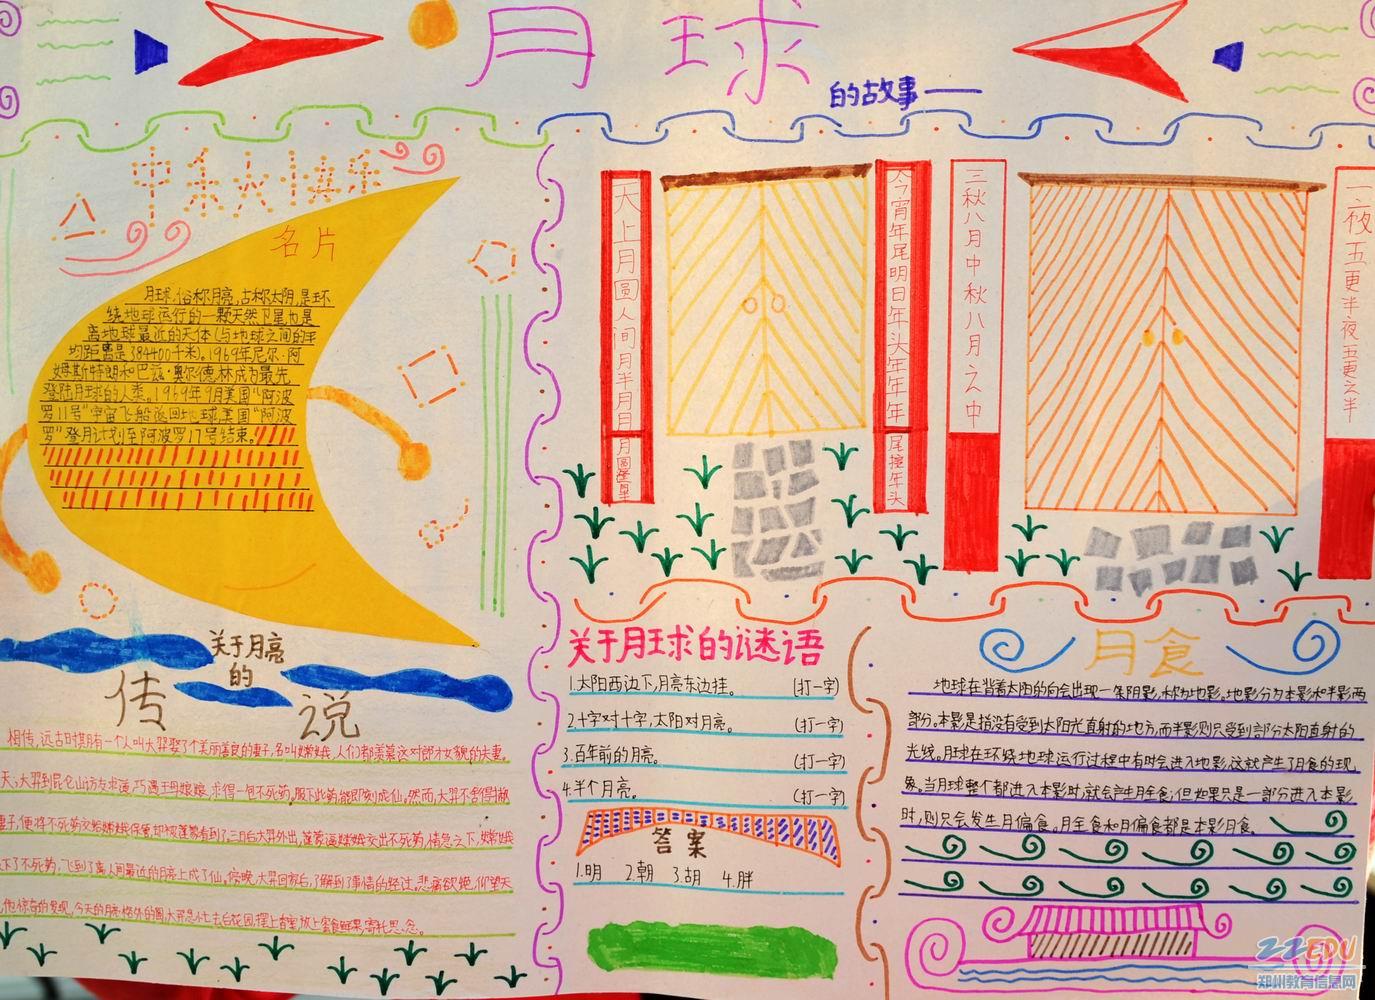 月球
的故事——
八月中秋快乐
名片
月球,俗称月亮,古称太阴,是环
绕地球运行的一颗天然卫星,也是
离地球最近的天体(与地球之间的平
均距离是384400千米)。1969年尼尔·阿
姆斯特朗和巴兹·奥尔德林成为最先
登陆月球的人类。1969年9月美国“阿波
罗11号”宇宙飞船返回地球,美国“阿波
罗”登月计划至阿波罗17号结束。
天上月圆人间月半月月月圆逢月半
今宵年尾明日年头年年年尾接年头
三秋八月中秋八月之中
一夜五更半夜五更之半
关于月亮
的
传说
相传,远古时期有一个人叫大羿娶了个美丽善良的妻子,名叫嫦娥,人们都羡慕这对郎才女貌的夫妻。
天,大羿到昆仑山访友求道,巧遇王母娘娘,求得一包不死药,服下此药,能即刻成仙。然而,大羿不舍得撇
妻子,便将不死药交给嫦娥保管,却被蓬蒙看到了,三日后大羿外出,蓬蒙逼嫦娥交出不死药,情急之下,嫦娥
下了不死药,飞到了离人间最近的月亮上成了仙。傍晚,大羿回家后,了解到了事情的经过,悲痛欲绝,仰望天
他惊奇的发现,今天的月亮格外的圆,大羿急忙去后花园,摆上香案,放上蜜食鲜果,寄托思念。
关于月球的谜语
1.太阳西边下,月亮东边挂。 (打一字)
2.十字对十字,太阳对月亮。 (打一字)
3.百年前的月亮。 (打一字)
4.半个月亮。 (打一字)
答案
1.明 2.朝 3.胡 4.胖
月食
地球在背着太阳的向会出现一条阴影,称为地影。地影分为本影和半影两
部分。本影是指没有受到太阳光直射的地方,而半影则只受到部分太阳直射的
光线。月球在环绕地球运行过程中有时会进入地影,这就产生了月食的现
象。当月球整个都进入本影时,就会产生月全食;但如果只是一部分进入本影
时,则只会发生月偏食。月全食和月偏食都是本影月食。
ZZEDU
郑州教育信息网